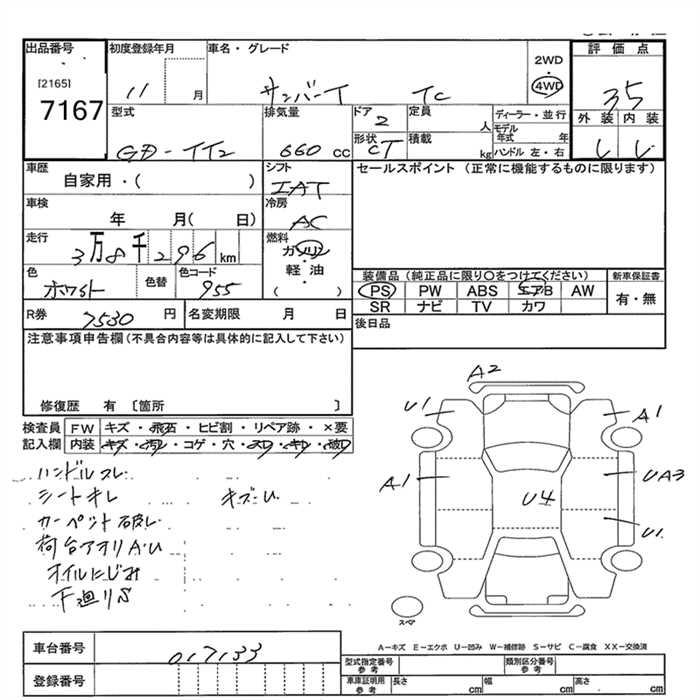 出品番号 初度登録年月 車名・グレード 2WD 評価点
[2165] 11 月 サンバーT TC 4WD 35
7167 型式 排気量 ドア 定員 ディーラー・並行 外装 内装
GD-TT2 660 CC 2 人 モデル年式 年
形状 CT 積載 kg ハンドル 左・右
車歴 シフト セールスポイント (正常に機能するものに限ります)
自家用・( ) IAT
車検 冷房
年 月( 日) AC
走行 燃料
3万8千296km ガソリン
軽・油
( )
色 色替 色コード 装備品(純正品に限り○をつけてください) 新車保証書
ホワイト 955 PS PW ABS エアB AW 有・無
SR ナビ TV カワ
R券 7530 円 名変期限 月 日 後日品
注意事項申告欄(不具合内容等は具体的に記入して下さい)
修復歴 有 〔箇所 〕
検査員 FW キズ・飛石・ヒビ割・リペア跡・×要
記入欄 内装 キズ・汚レ・コゲ・穴・スレ・キレ・破レ
A2
U1 A1
A1 UA3
U4
U1
ハンドルスレ
シートキレ キズU
カーペット破レ
荷台アオリA.U
オイルにじみ
下廻りS
スペア
A-キズ E-エクボ U-凹み W-補修跡 S-サビ C-腐食 XX-交換済
車台番号 017133
型式指定番号 参考 類別区分番号 参考
登録番号
車庫証明用 参考 長さ cm 幅 cm 高さ cm